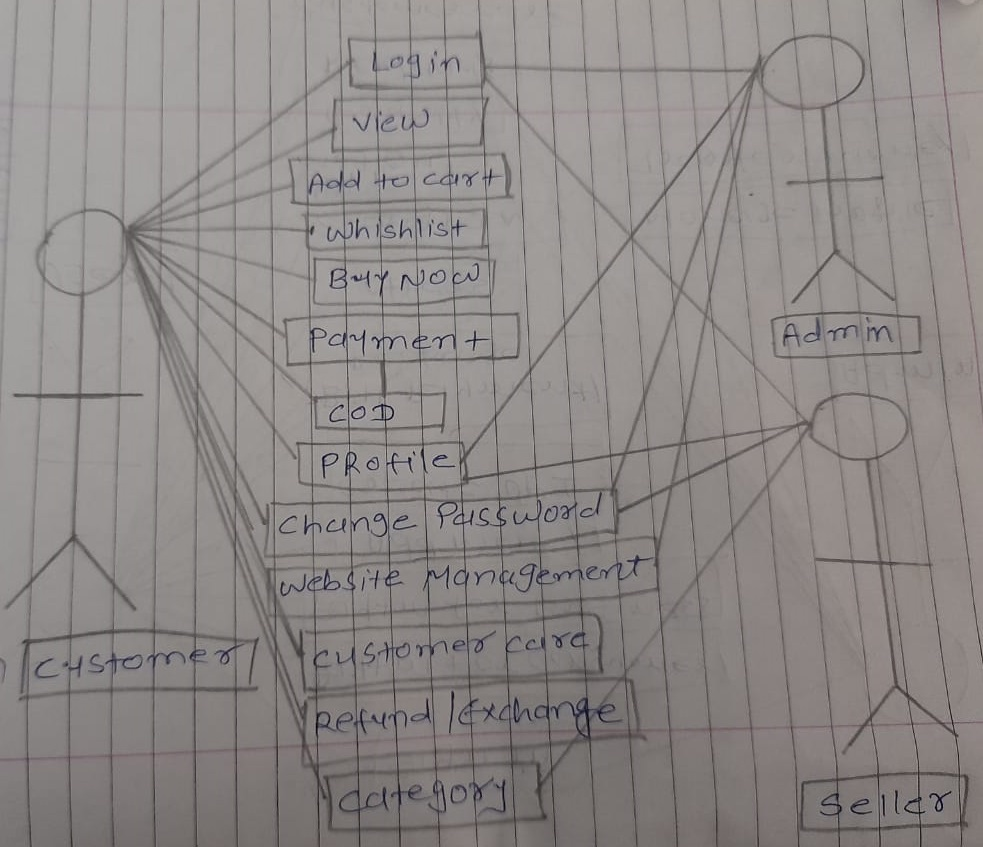 Login
View
Add to cart
Whishlist
Buy NOW
Payment
Admin
COD
PROfile
Change Password
Website Management
Customer
Customer care
Refund / Exchange
Category
Seller